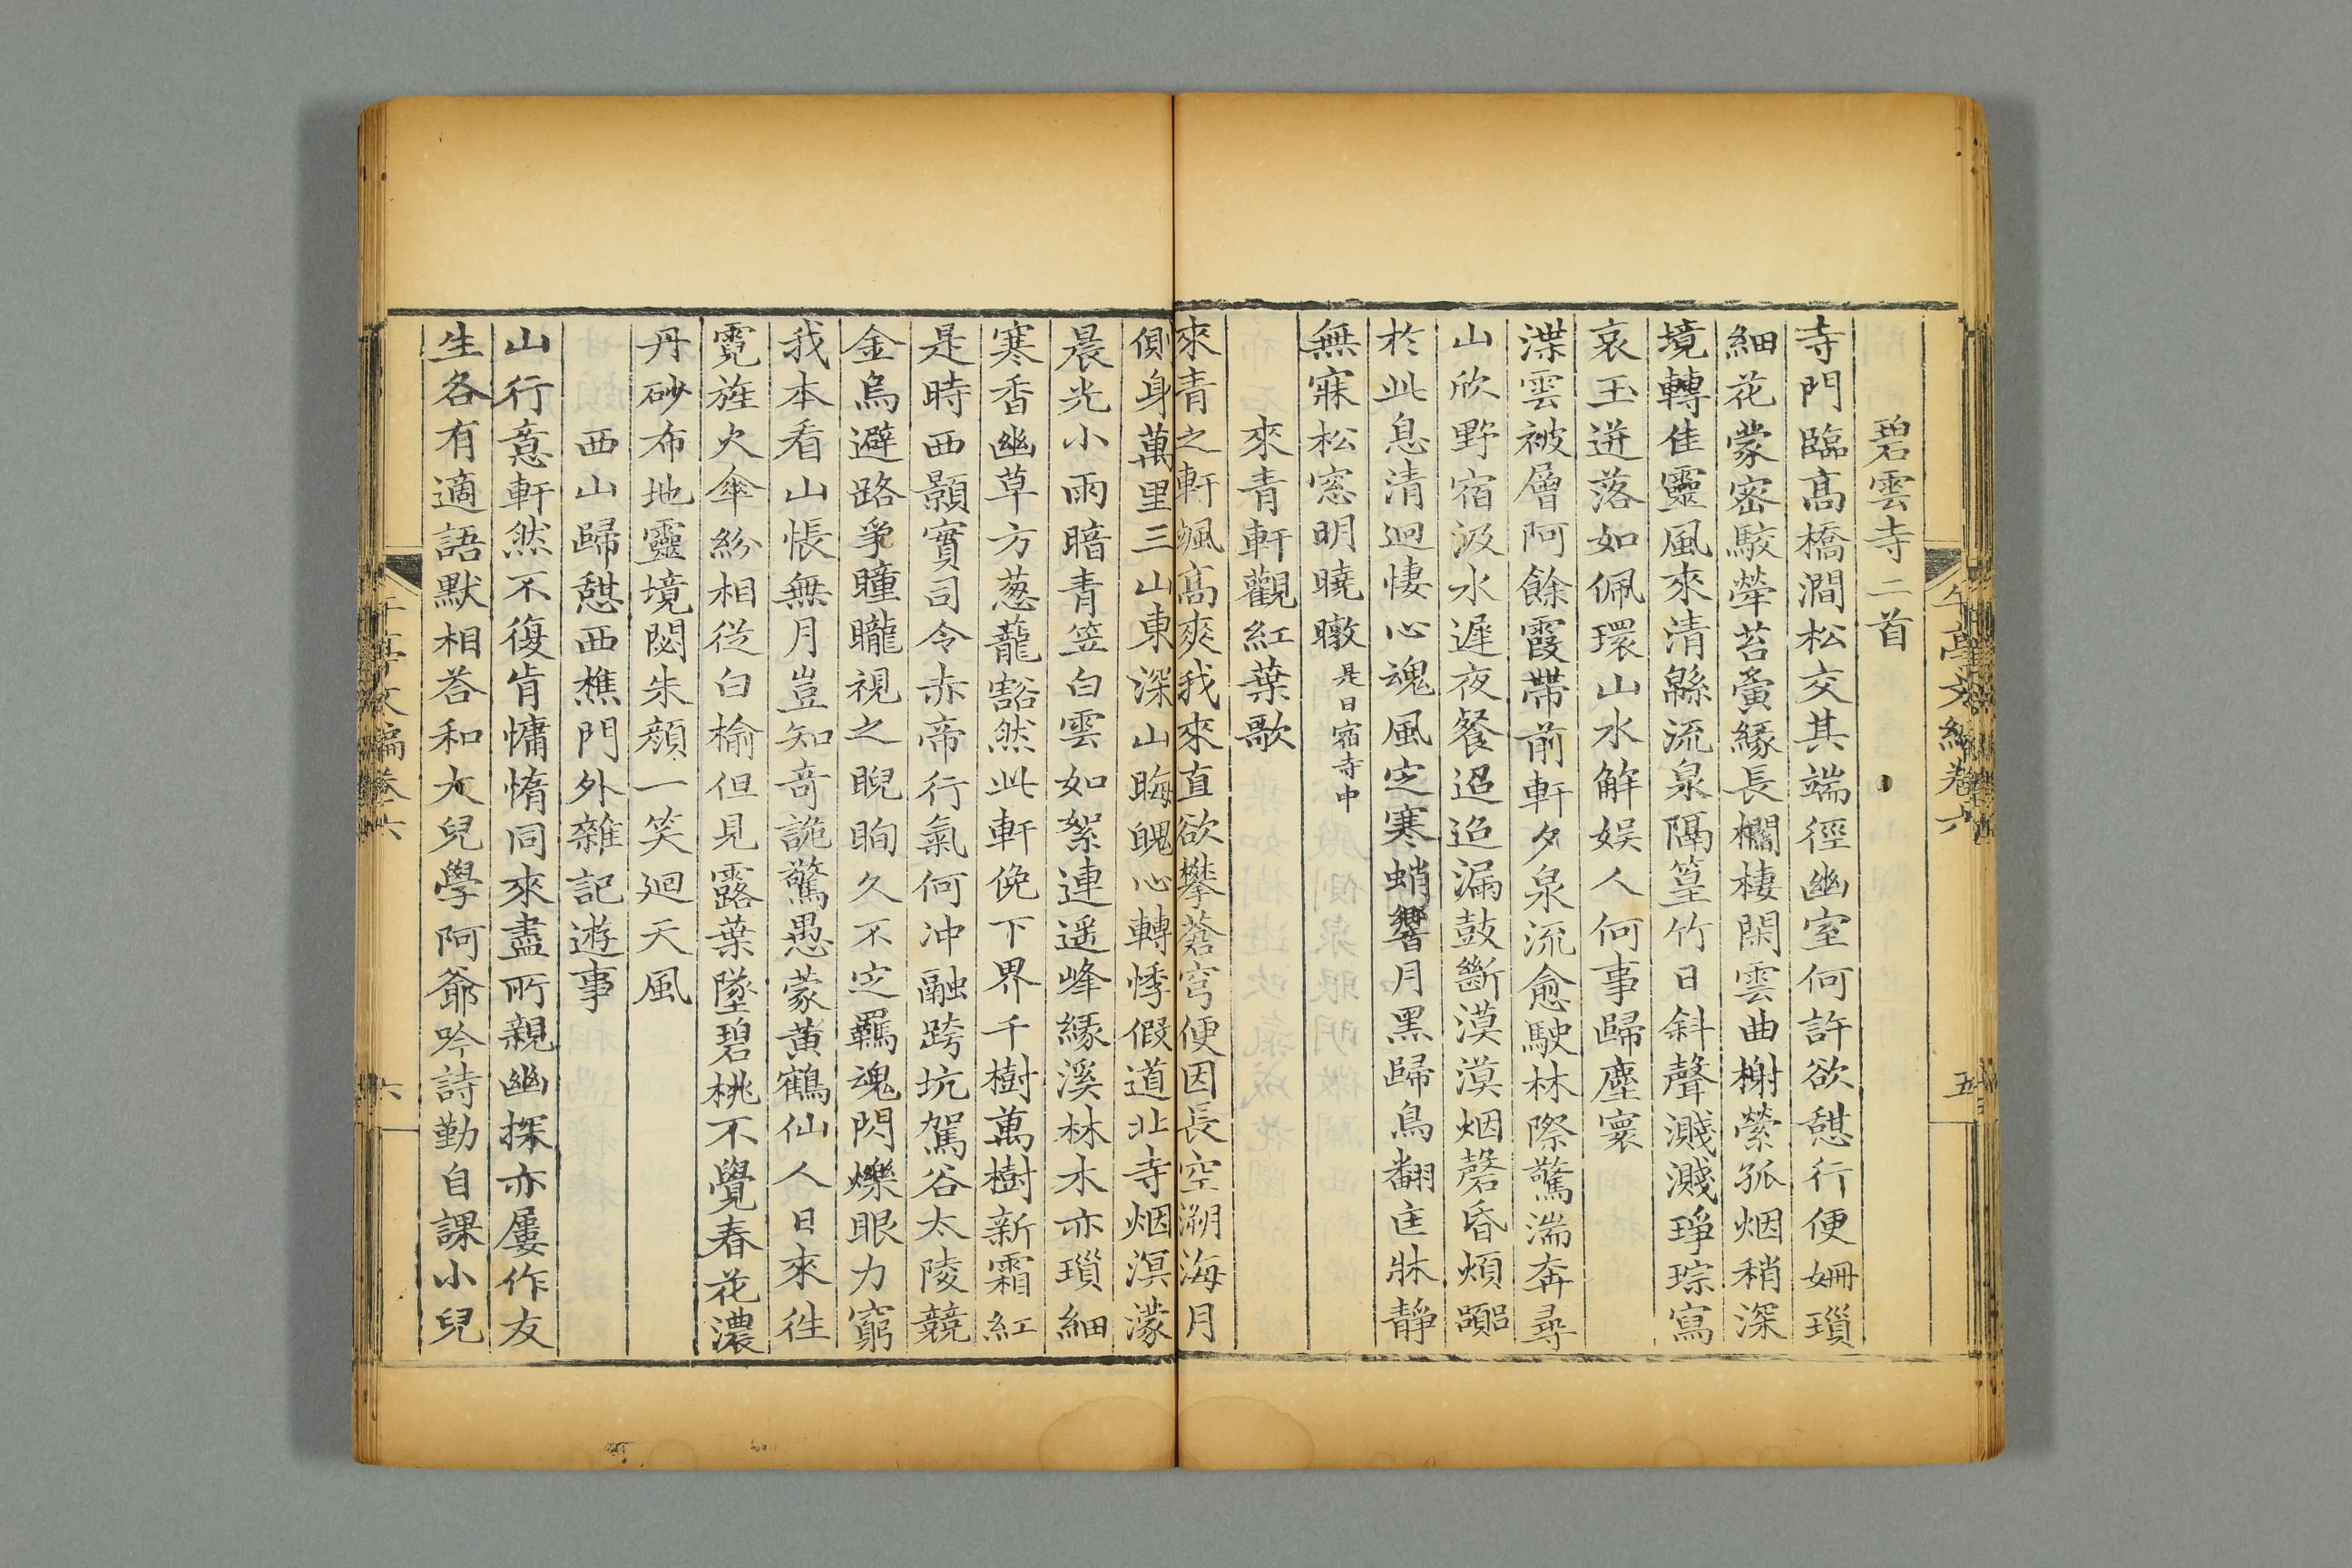 午亭文編卷六
五
碧雲寺二首
寺門臨高橋澗松交其端徑幽室何許欲憇行便姍瑣
細花蒙宻駮犖苔夤緣長欄棲閑雲曲榭縈孤烟稍深
境轉佳靈風來清緜流泉隔篁竹日斜聲濺濺琤琮寫
哀玉迸落如佩環山水解娛人何事歸塵寰
渫雲被層阿餘霞帶前軒夕泉流愈駛林際驚湍奔尋
山欣野宿汲水遲夜餐迢迢漏鼓斷漠漠烟磬昏煩嚻
於此息清迥悽心魂風定寒蛸響月黑歸鳥翻匡牀靜
無寐松窓明曉暾是日宿寺中
來青軒觀紅葉歌
來青之軒颯高爽我來直欲攀蒼穹便因長空溯海月
側身萬里三山東深山晦魄心轉悸假道北寺烟溟濛
晨光小雨暗青笠白雲如絮連遥峰緣溪林木亦瑣細
寒香幽草方葱蘢豁然此軒俛下界千樹萬樹新霜紅
是時西顥實司令赤帝行氣何冲融跨坑駕谷太陵競
金烏避路爭曈曨視之睨眴久不定羈魂閃爍眼力窮
我本看山悵無月豈知竒詭驚愚蒙黄鶴仙人日來徃
霓旌火傘紛相從白榆但見露葉墜碧桃不覺春花濃
丹砂布地靈境閟朱顔一笑廻天風
西山歸憇西樵門外雜記遊事
山行意軒然不復肯慵惰同來盡所親幽探亦屢作友
生各有適語默相荅和大兒學阿爺吟詩勤自課小兒
午亭文編卷六
六